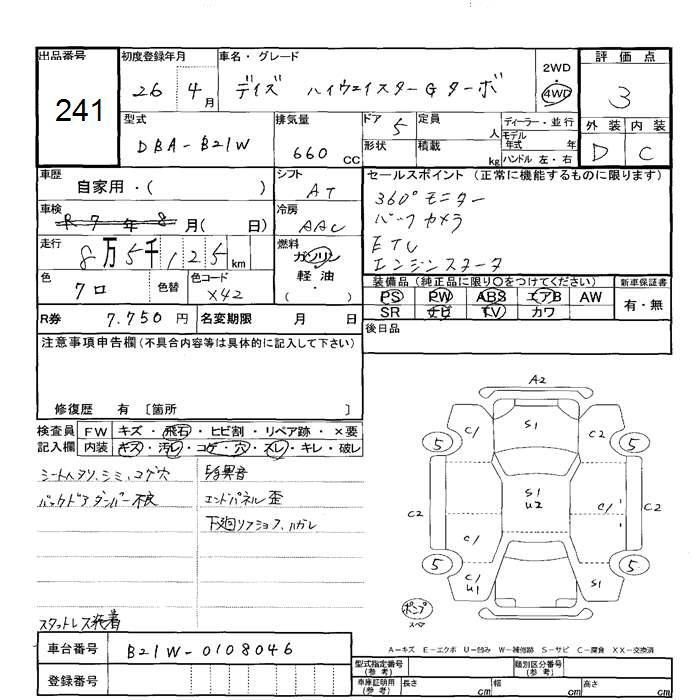 出品番号
241
初度登録年月
26 4月
車名・グレード
デイズ ハイウェイスターGターボ
2WD
・
4WD
評価点
3
外装 内装
D C
型式
DBA-B21W
排気量
660 CC
ドア 5
形状
定員 人
積載 kg
ディーラー・並行
モデル年式 年
ハンドル 左・右
車歴
自家用・( )
シフト
AT
セールスポイント (正常に機能するものに限ります)
360°モニター
バックカメラ
ETC
エンジンスタータ
車検
R7年8月( 日)
冷房
AAC
走行
8万5千125km
燃料
ガソリン
軽油
( )
色
クロ
色替
色コード
X42
装備品 (純正品に限り○をつけてください)
PS PW ABS エアB AW
SR ナビ TV カワ
新車保証書
有・無
R券 7.750円
名変期限 月 日
後日品
注意事項申告欄(不具合内容等は具体的に記入して下さい)
修復歴 有 〔箇所 〕
検査員記入欄
FW キズ・飛石・ヒビ割・リペア跡・×要
内装 キズ・汚レ・コゲ・穴・スレ・キレ・破レ
シートヘタリ、シミ、コゲ穴
バックドアダンパー不良
異音
エンドパネル歪
下廻リアショフ、ハガレ
スタットレス装着
A2
S1
C/
C2
5
5
S1
U2
C2
C/
C/
C2
5
5
C/
U1
S1
ポンプ
スペア
A-キズ E-エクボ U-凹み W-補修跡 S-サビ C-腐食 XX-交換済
車台番号
B21W-0108046
登録番号
型式指定番号(参考)
類別区分番号(参考)
車庫証明用(参考)
長さ cm
幅 cm
高さ cm